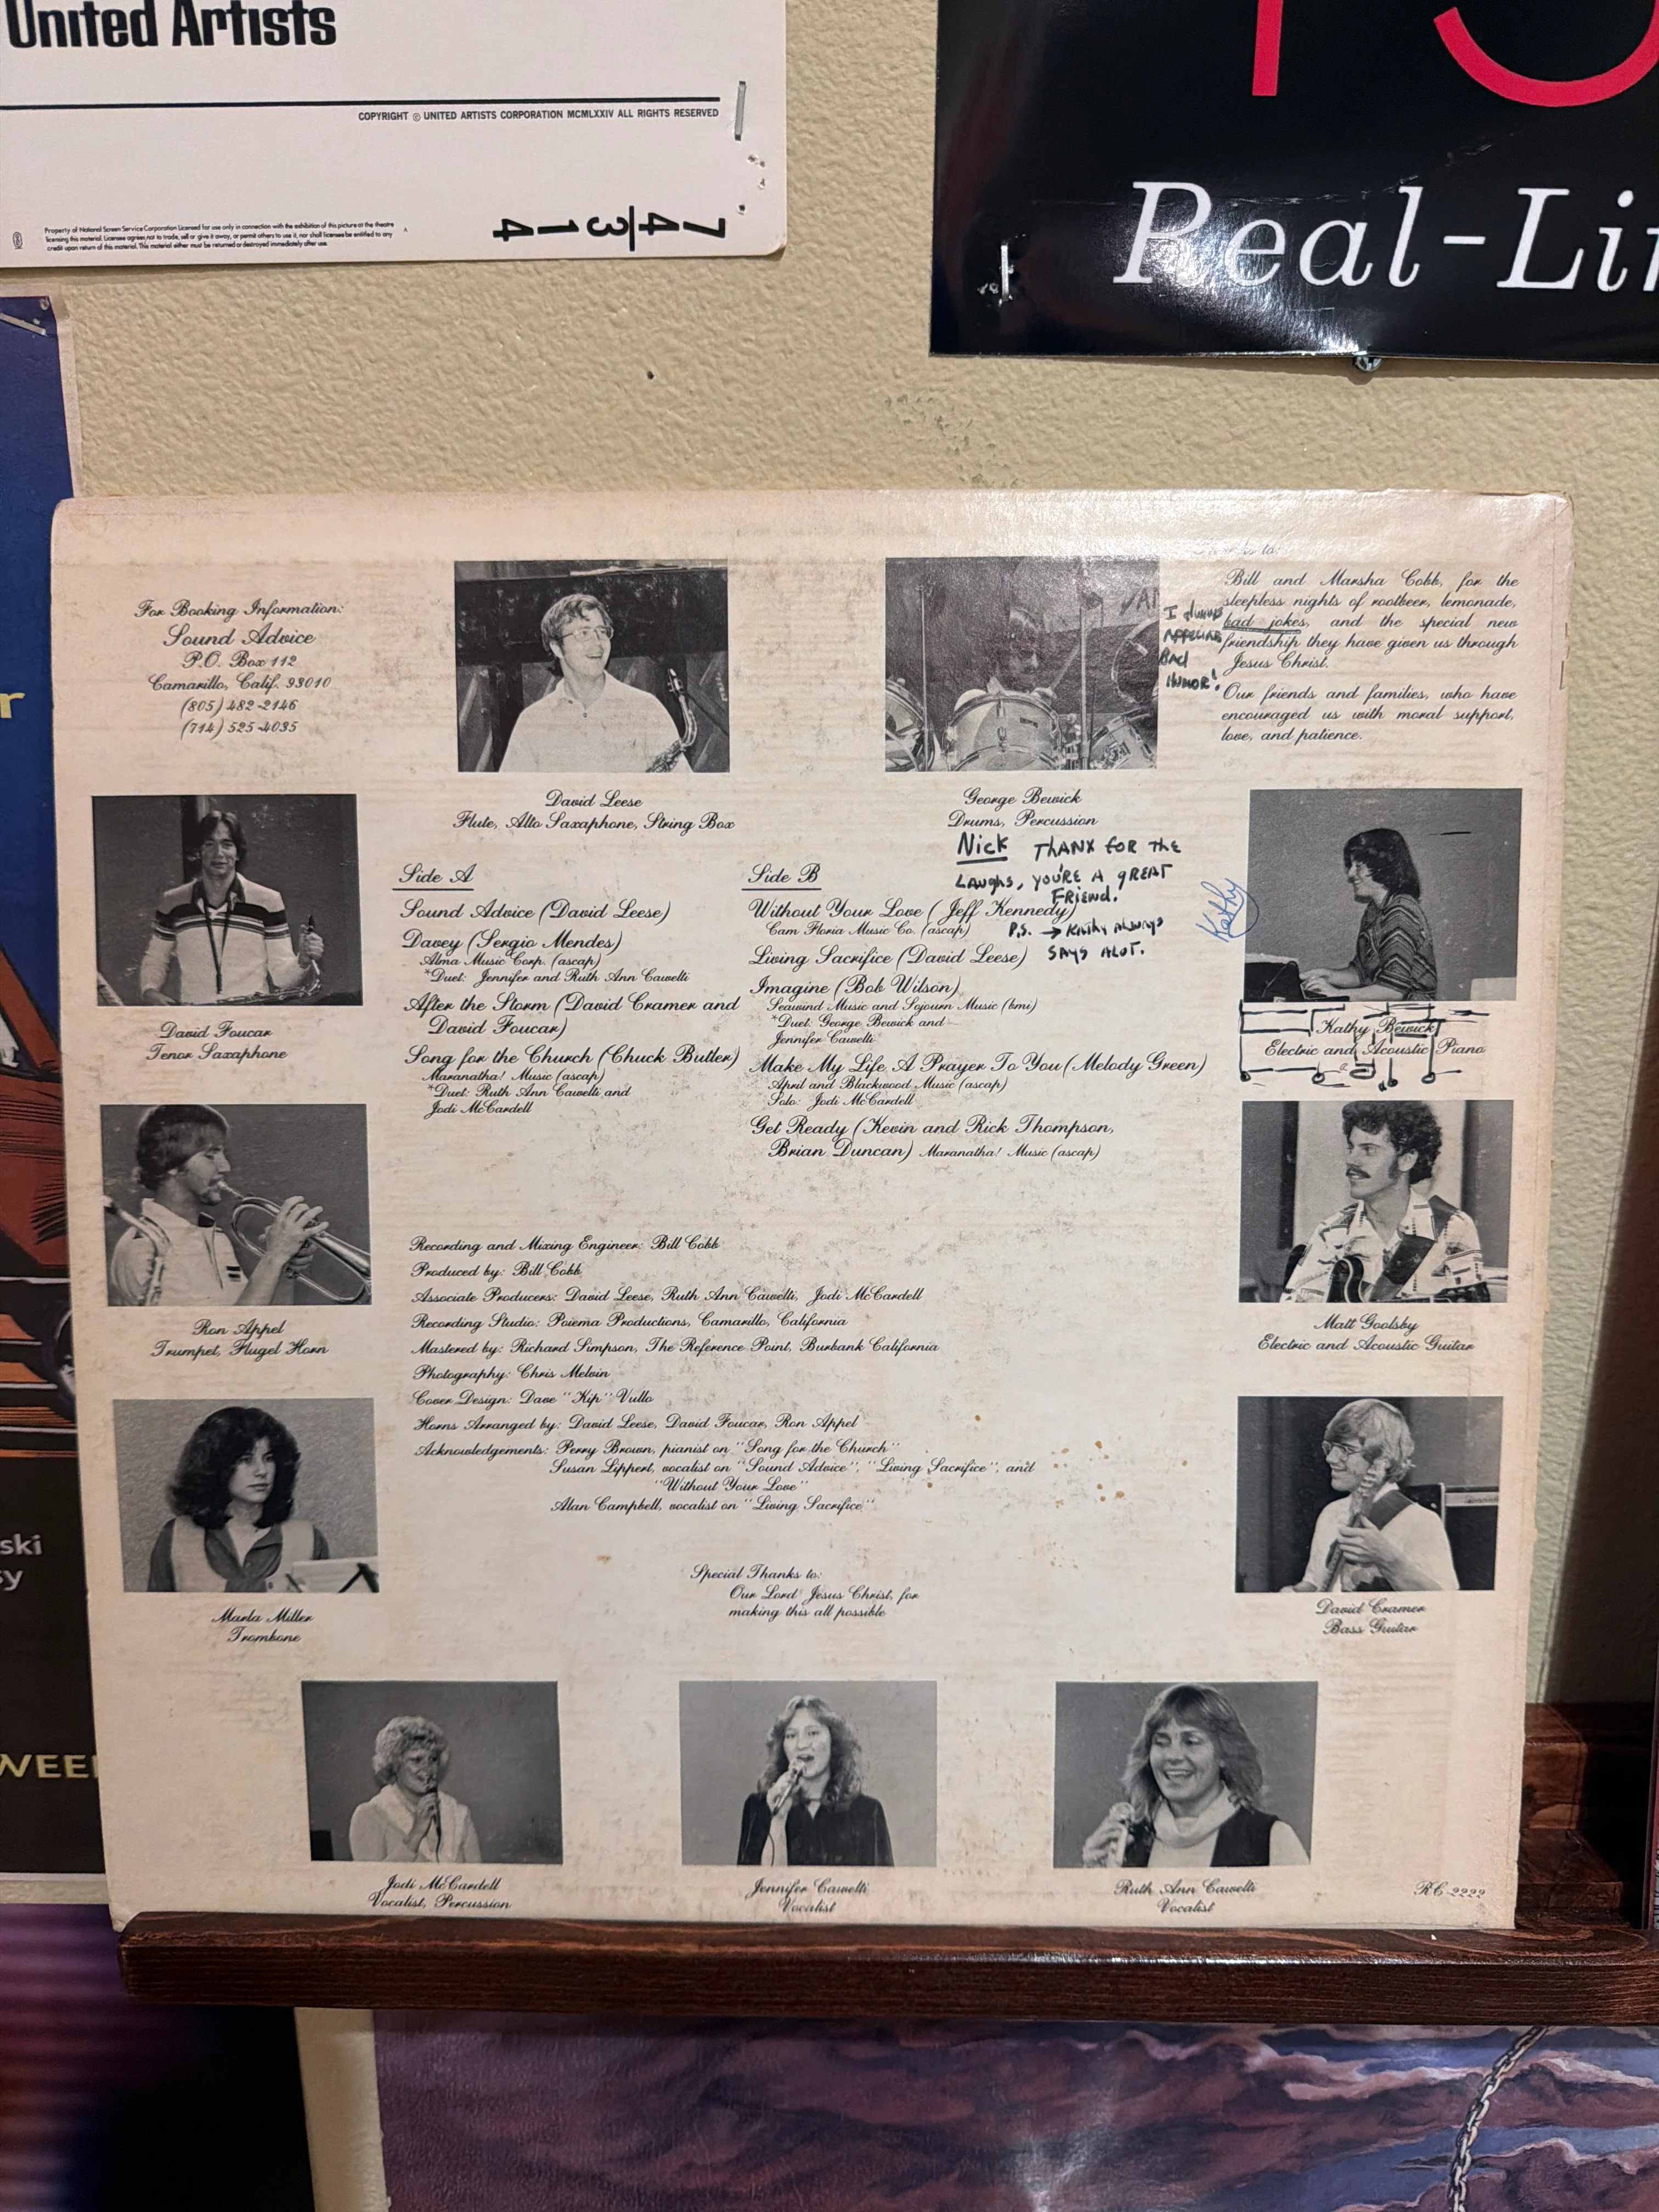 United Artists
COPYRIGHT © UNITED ARTISTS CORPORATION MCMLXXIV ALL RIGHTS RESERVED
Property of National Screen Service Corporation Licensed for use only in connection with the exhibition of this picture at the theatre
licensing this material. Licensee agrees not to trade, sell or give it away, or permit others to use it, nor shall licensee be entitled to any
credit upon return of this material. This material either must be returned or destroyed immediately after use.
74/314
Real-Li
r
ski
sy
WEE
For Booking Information:
Sound Advice
P.O. Box 112
Camarillo, Calif. 93010
(805) 482-2146
(714) 525-4035
David Leese
Flute, Alto Saxaphone, String Box
George Bewick
Drums, Percussion
to:
Bill and Marsha Cobb, for the
sleepless nights of rootbeer, lemonade,
bad jokes, and the special new
friendship they have given us through
Jesus Christ.
Our friends and families, who have
encouraged us with moral support,
love, and patience.
I
BAD
HUMOR!
Nick THANX FOR THE
LAUGHS, YOU'RE A GREAT
FRIEND.
P.S. → KATHY ALWAYS
SAYS ALOT.
Kathy
David Foucar
Tenor Saxaphone
Side A
Sound Advice (David Leese)
Davey (Sergio Mendes)
Alma Music Corp. (ascap)
*Duet: Jennifer and Ruth Ann Cawelti
After the Storm (David Cramer and
David Foucar)
Song for the Church (Chuck Butler)
Maranatha! Music (ascap)
*Duet: Ruth Ann Cawelti and
Jodi McCardell
Side B
Without Your Love (Jeff Kennedy)
Cam Floria Music Co. (ascap)
Living Sacrifice (David Leese)
Imagine (Bob Wilson)
Seawind Music and Sojourn Music (bmi)
*Duet: George Bewick and
Jennifer Cawelti
Make My Life A Prayer To You (Melody Green)
April and Blackwood Music (ascap)
Solo: Jodi McCardell
Get Ready (Kevin and Rick Thompson,
Brian Duncan) Maranatha! Music (ascap)
Kathy Bewick
Electric and Acoustic Piano
Ron Appel
Trumpet, Flugel Horn
Matt Goolsby
Electric and Acoustic Guitar
Recording and Mixing Engineer: Bill Cobb
Produced by: Bill Cobb
Associate Producers: David Leese, Ruth Ann Cawelti, Jodi McCardell
Recording Studio: Poiema Productions, Camarillo, California
Mastered by: Richard Simpson, The Reference Point, Burbank California
Photography: Chris Melvin
Cover Design: Dave "Kip" Vullo
Horns Arranged by: David Leese, David Foucar, Ron Appel
Acknowledgements: Perry Brown, pianist on "Song for the Church"
Susan Lippert, vocalist on "Sound Advice", "Living Sacrifice", and
"Without Your Love"
Alan Campbell, vocalist on "Living Sacrifice"
Special Thanks to:
Our Lord Jesus Christ, for
making this all possible
Marla Miller
Trombone
David Cramer
Bass Guitar
Jodi McCardell
Vocalist, Percussion
Jennifer Cawelti
Vocalist
Ruth Ann Cawelti
Vocalist
RC-2222